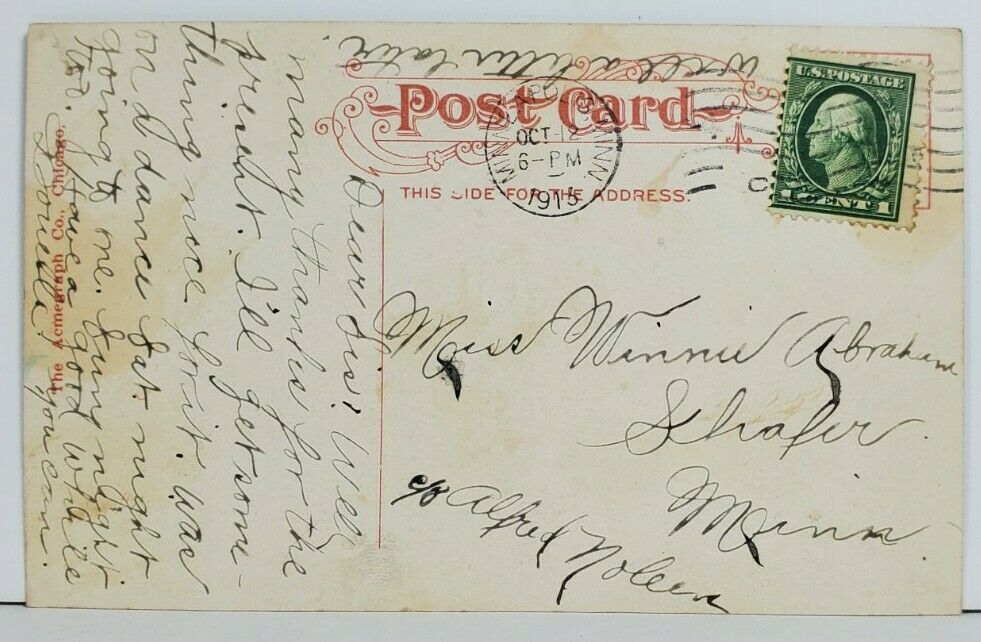 Post Card
THIS SIDE FOR THE ADDRESS.
MINNEAPOLIS, MINN.
OCT 12
6-PM
191
U.S. POSTAGE
1 CENT 1
Miss Winnie Abraham
Shafer
Minn.
c/o Alfred Noleen
Dear Sis! Well
many thanks for the
present. I'll get some-
thing nice for it. Was
on dance Sat. night
going to one. Sunnight
too. Have a good while
you can.
will a letter later.
The Acmegraph Co., Chicago.